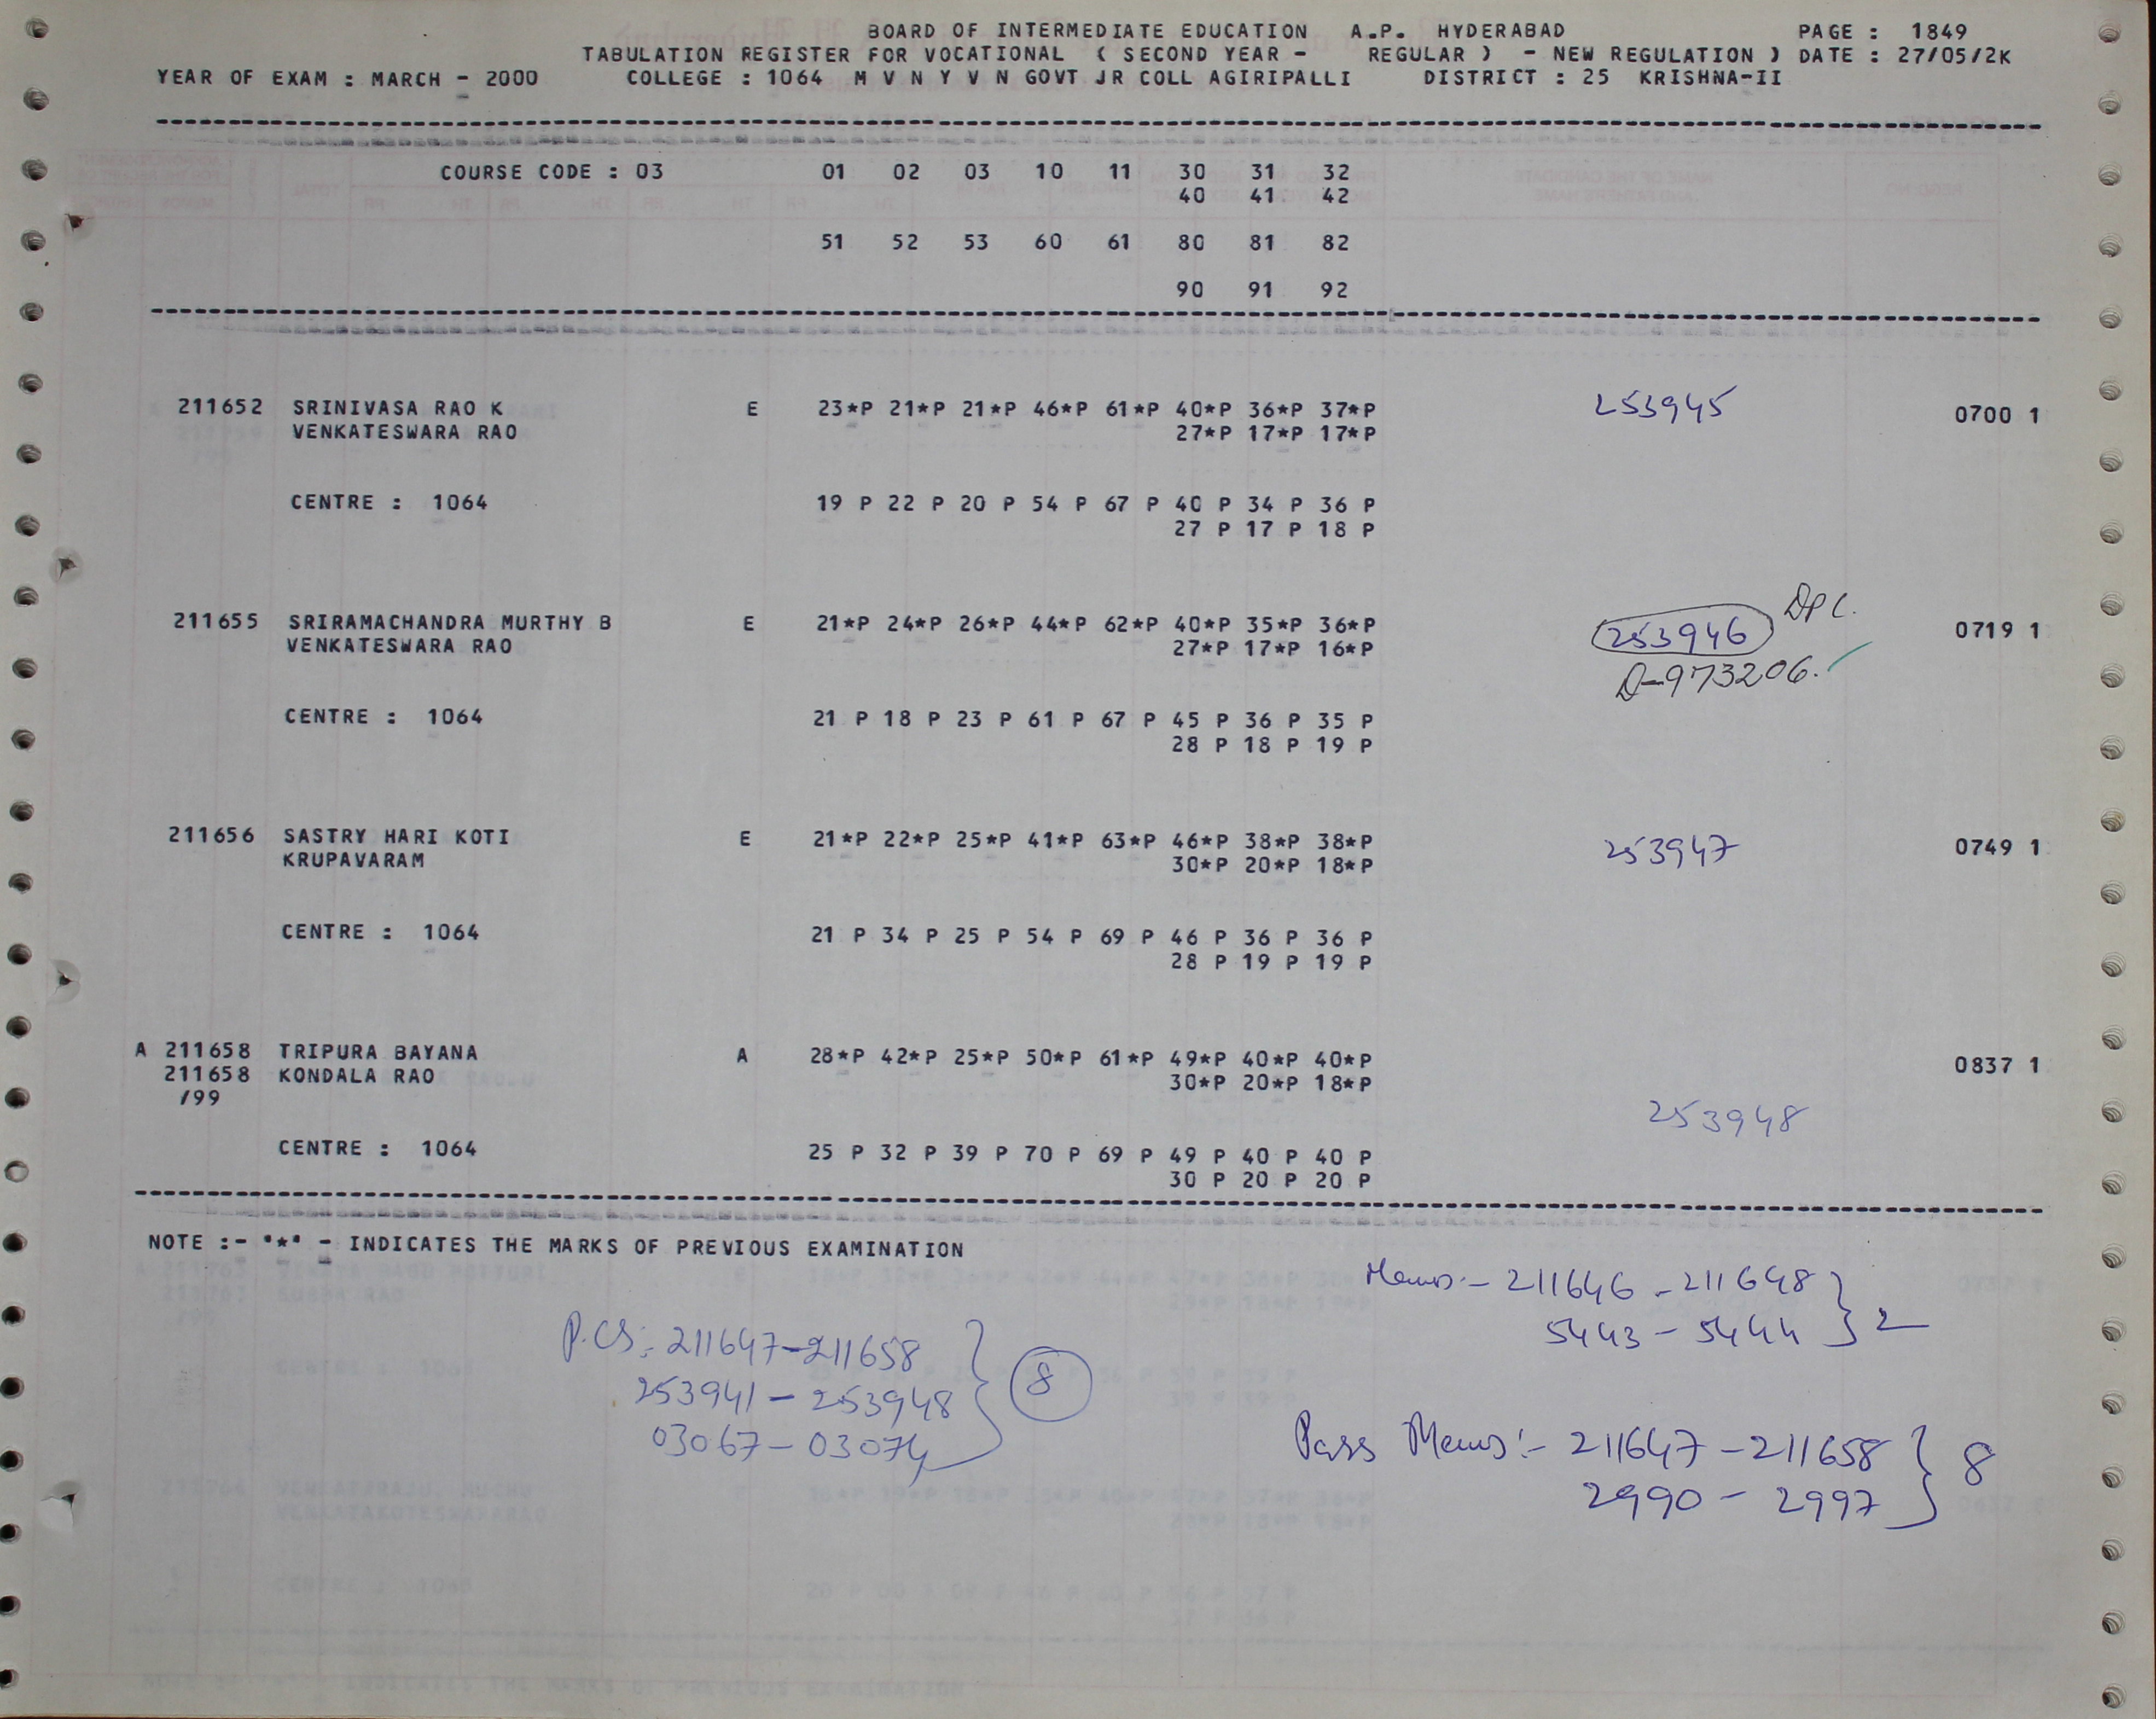 BOARD OF INTERMEDIATE EDUCATION A.P. HYDERABAD PAGE : 1849
TABULATION REGISTER FOR VOCATIONAL ( SECOND YEAR - REGULAR ) - NEW REGULATION ) DATE : 27/05/2K
YEAR OF EXAM : MARCH - 2000 COLLEGE : 1064 M V N Y V N GOVT JR COLL AGIRIPALLI DISTRICT : 25 KRISHNA-II
COURSE CODE : 03 01 02 03 10 11 30 31 32
40 41 42
51 52 53 60 61 80 81 82
90 91 92
211652 SRINIVASA RAO K E 23*P 21*P 21*P 46*P 61*P 40*P 36*P 37*P 253945 0700 1
VENKATESWARA RAO 27*P 17*P 17*P
CENTRE : 1064 19 P 22 P 20 P 54 P 67 P 40 P 34 P 36 P
27 P 17 P 18 P
211655 SRIRAMACHANDRA MURTHY B E 21*P 24*P 26*P 44*P 62*P 40*P 35*P 36*P 253946 DPC. 0719 1
VENKATESWARA RAO 27*P 17*P 16*P D-973206.
CENTRE : 1064 21 P 18 P 23 P 61 P 67 P 45 P 36 P 35 P
28 P 18 P 19 P
211656 SASTRY HARI KOTI E 21*P 22*P 25*P 41*P 63*P 46*P 38*P 38*P 253947 0749 1
KRUPAVARAM 30*P 20*P 18*P
CENTRE : 1064 21 P 34 P 25 P 54 P 69 P 46 P 36 P 36 P
28 P 19 P 19 P
A 211658 TRIPURA BAYANA A 28*P 42*P 25*P 50*P 61*P 49*P 40*P 40*P 0837 1
211658 KONDALA RAO 30*P 20*P 18*P
/99 253948
CENTRE : 1064 25 P 32 P 39 P 70 P 69 P 49 P 40 P 40 P
30 P 20 P 20 P
NOTE :- '*' - INDICATES THE MARKS OF PREVIOUS EXAMINATION
Memos:- 211646 - 211648
5443 - 5444 } 2
P.Cs: 211647-211658
253941 - 253948 } 8
03067 - 03074
Pass Memos:- 211647 - 211658
2990 - 2997 } 8